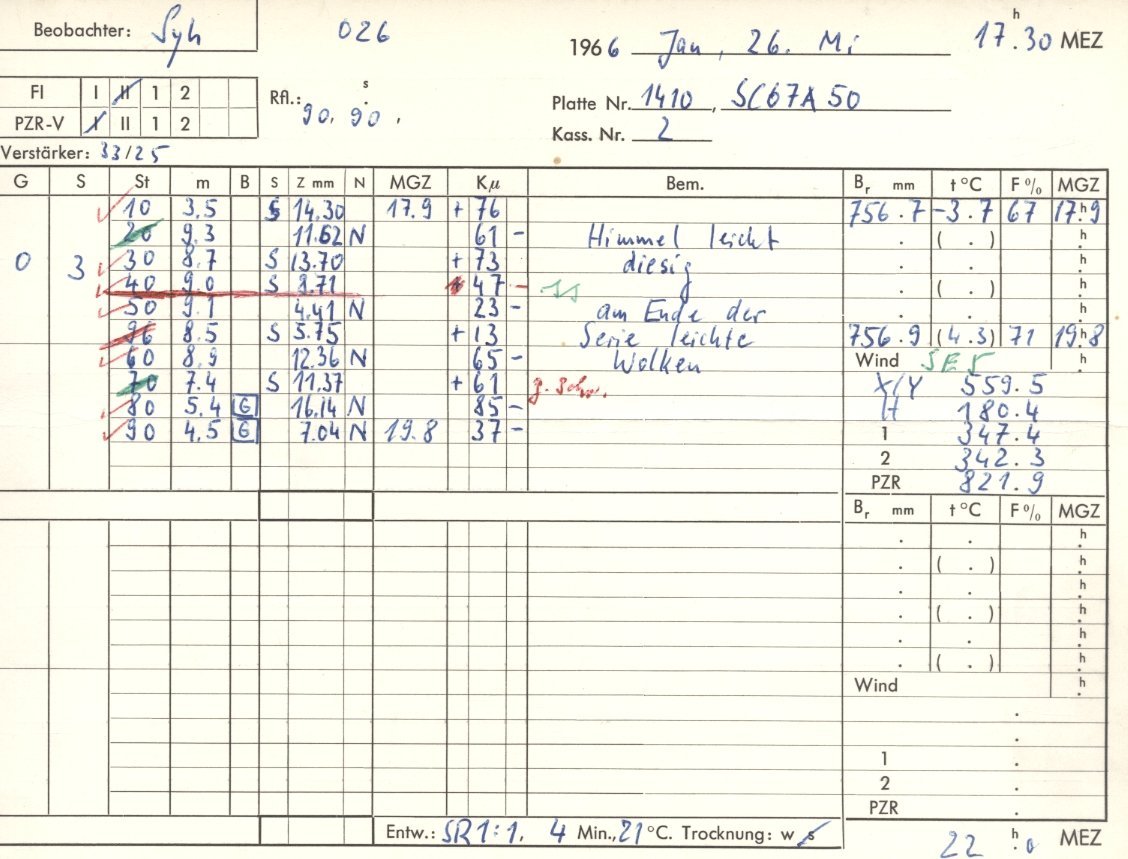 Beobachter: Syh 026 1966 Jan, 26. Mi 17h.30 MEZ
FI I II 1 2 Rfl.: 90. 90. s Platte Nr. 1410, SC67A50
PZR-V I II 1 2 Kass. Nr. 2
Verstärker: 33/25
G S St m B S Z mm N MGZ Kμ Bem. Br mm t °C F % MGZ
10 3,5 S 14.30 17.9 + 76 756.7 -3.7 67 17h9
20 9.3 11.62 N 61 - Himmel leicht . ( . ) h
0 3 30 8.7 S 13.70 + 73 diesig . . h
40 9.0 S 8.71 + 47 - . ( . ) h
50 9.1 4.41 N 23 - am Ende der . . h
96 8.5 S 5.75 + 13 Serie leichte 756.9 (4.3) 71 19h8
60 8.9 12.36 N 65 - Wolken Wind SE 5 h
70 7.4 S 11.37 + 61 X/Y 559.5
80 5.4 G 16.14 N 85 - H 180.4
90 4.5 G 7.04 N 19.8 37 - 1 347.4
2 342.3
PZR 821.9
Br mm t °C F % MGZ
. . h
. ( . ) h
. . h
. ( . ) h
. . h
. ( . ) h
Wind h
.
.
1 .
2 .
PZR .
Entw.: SR 1:1, 4 Min., 21 °C. Trocknung: w s
22 h.0 MEZ